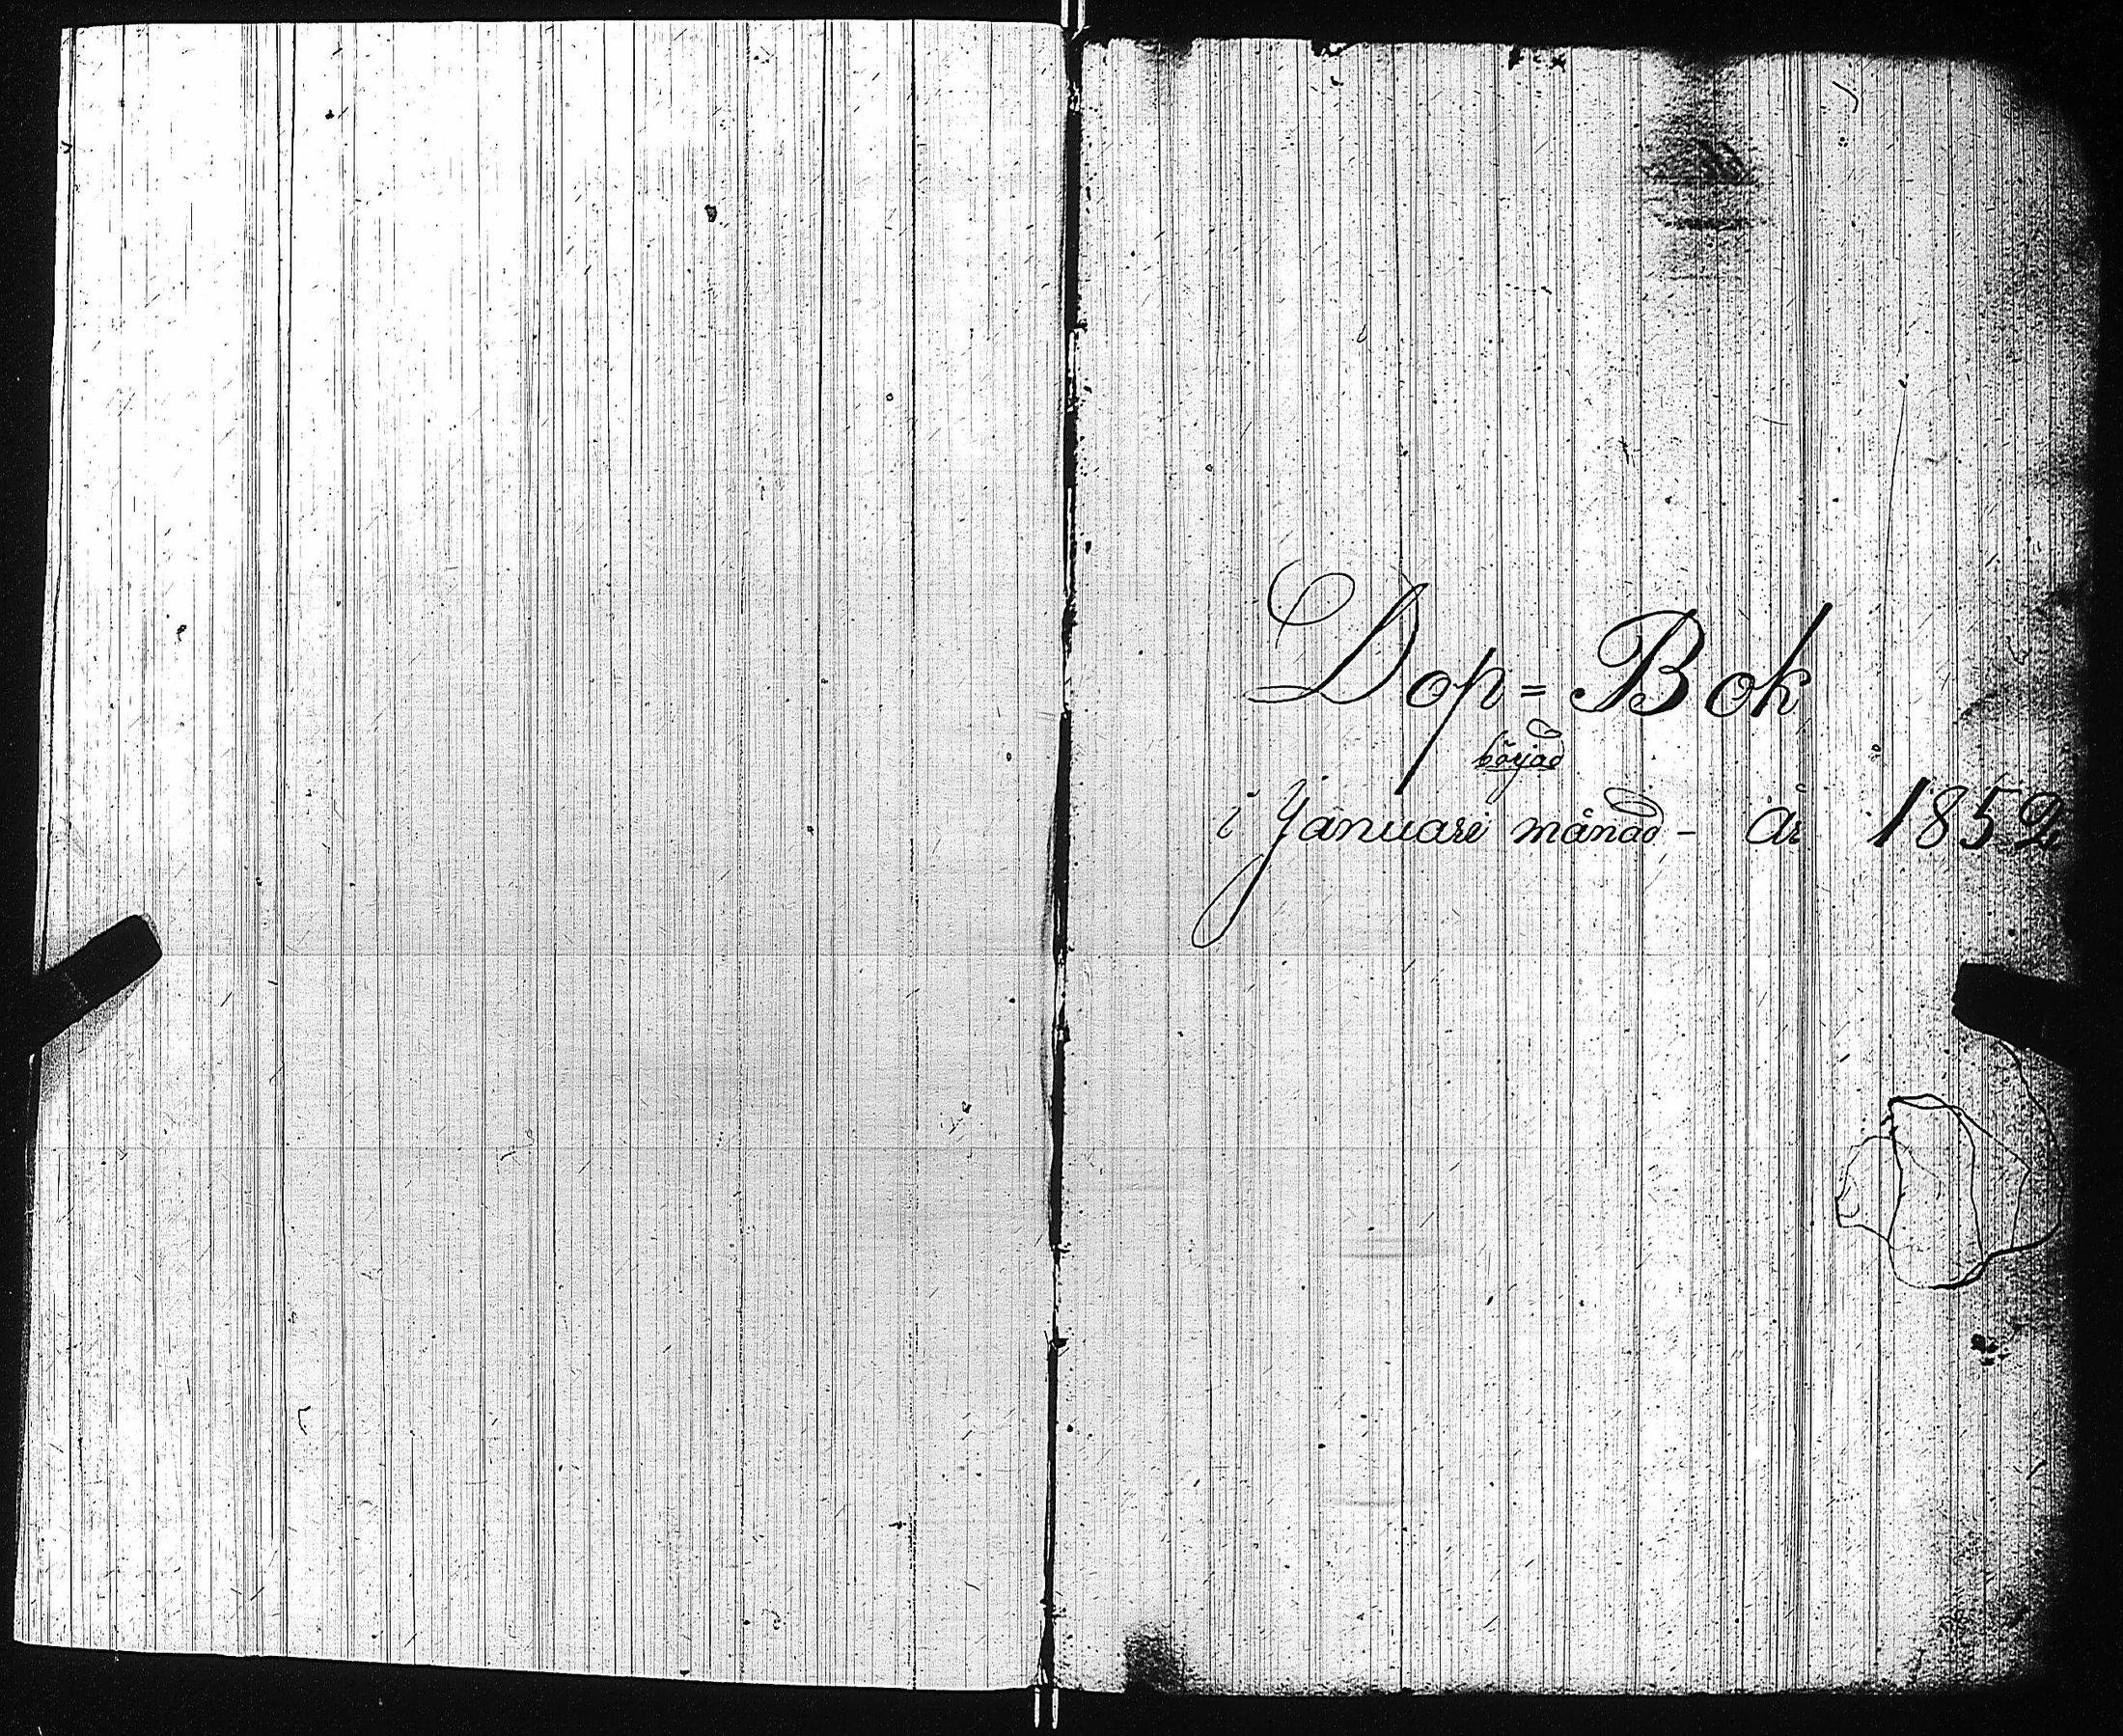 Dop=Bok
börjad
i Januari månad – År 1852